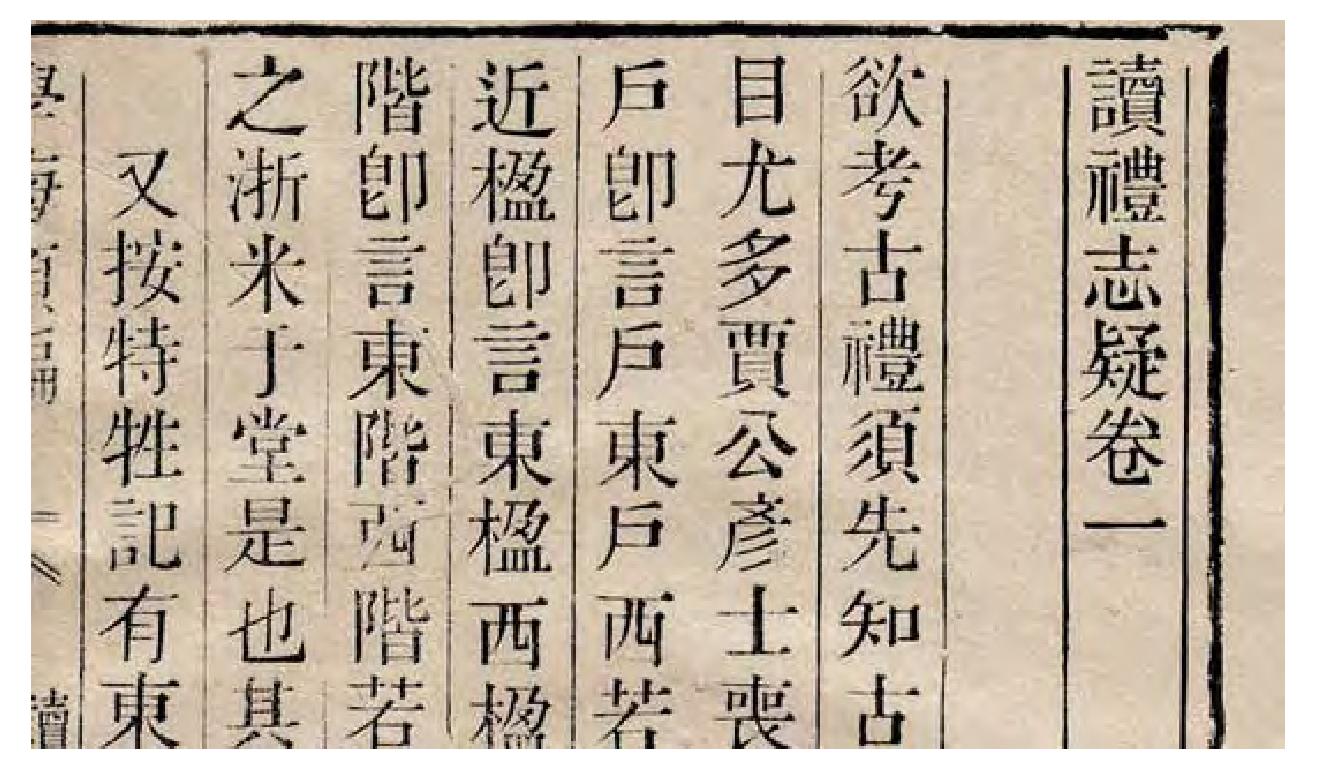 讀禮志疑卷一
欲考古禮須先知古
目尤多賈公彥士喪
戶卽言戶東戶西若
近楹卽言東楹西楹
階卽言東階西階若
之浙米于堂是也其
又按特牲記有東
學海類編
讀